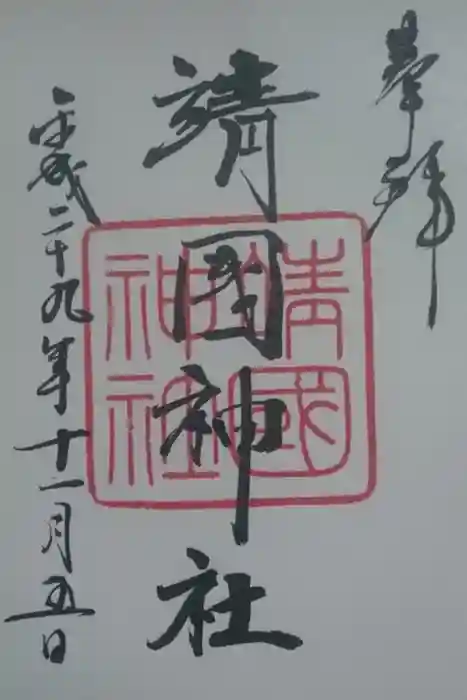 奉拝
靖國神社
靖國神社
平成二十九年十一月五日